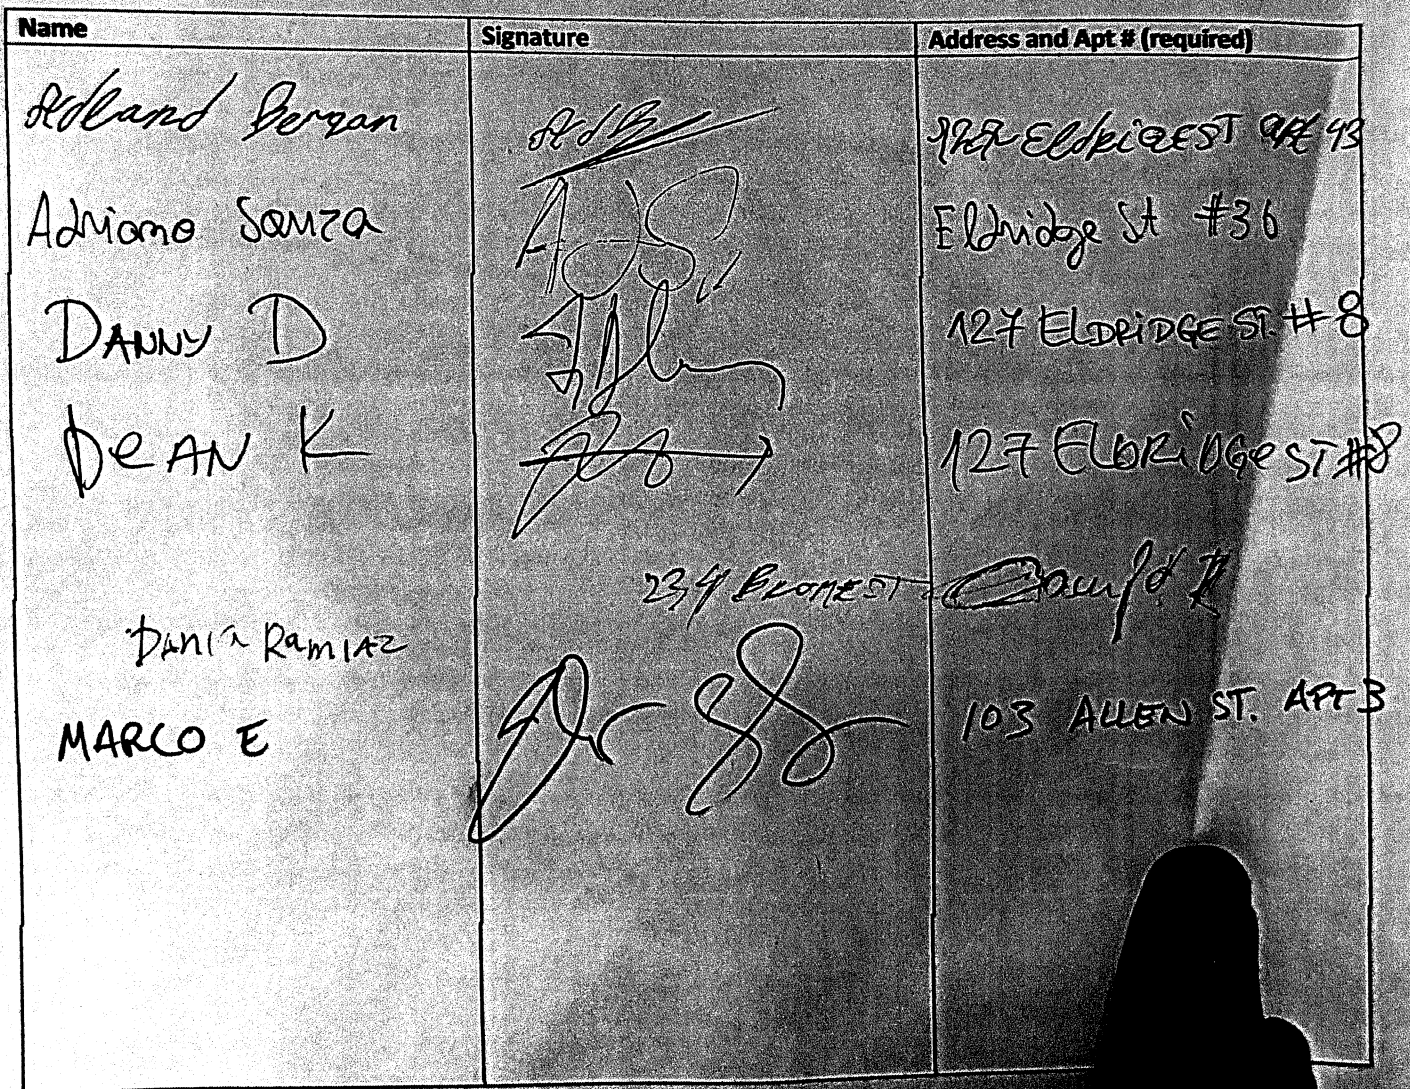 Name Signature Address and Apt # (required)
Bergan 127 Eldridge ST apt 43
Adriano Souza Eldridge St #36
DANNY D 127 ELDRiDGE ST. #8
DeAN K 127 ELDRiDGe ST #8
234 BROMEST
DANIA RamIAZ
MARCO E 103 ALLEN ST. APT 3